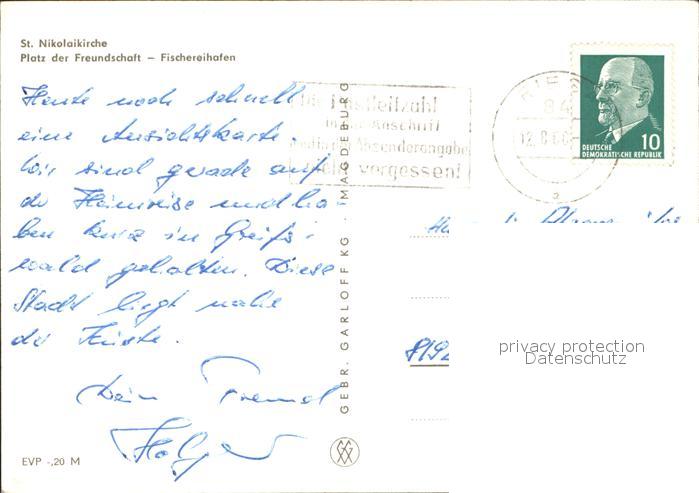 St. Nikolaikirche
Platz der Freundschaft – Fischereihafen
Heute noch schnell
eine Ansichtskarte.
Wir sind gerade auf
der Heimreise und ha-
ben kurz in Greifs-
wald gehalten. Diese
Stadt liegt nahe
der Küste.
Dein Freund
Holger
EVP -,20 M
GEBR. GARLOFF KG · MAGDEBURG
Postleitzahl
Anschrift
Absenderangabe
vergessen!
DEUTSCHE
DEMOKRATISCHE REPUBLIK
10
privacy protection
Datenschutz